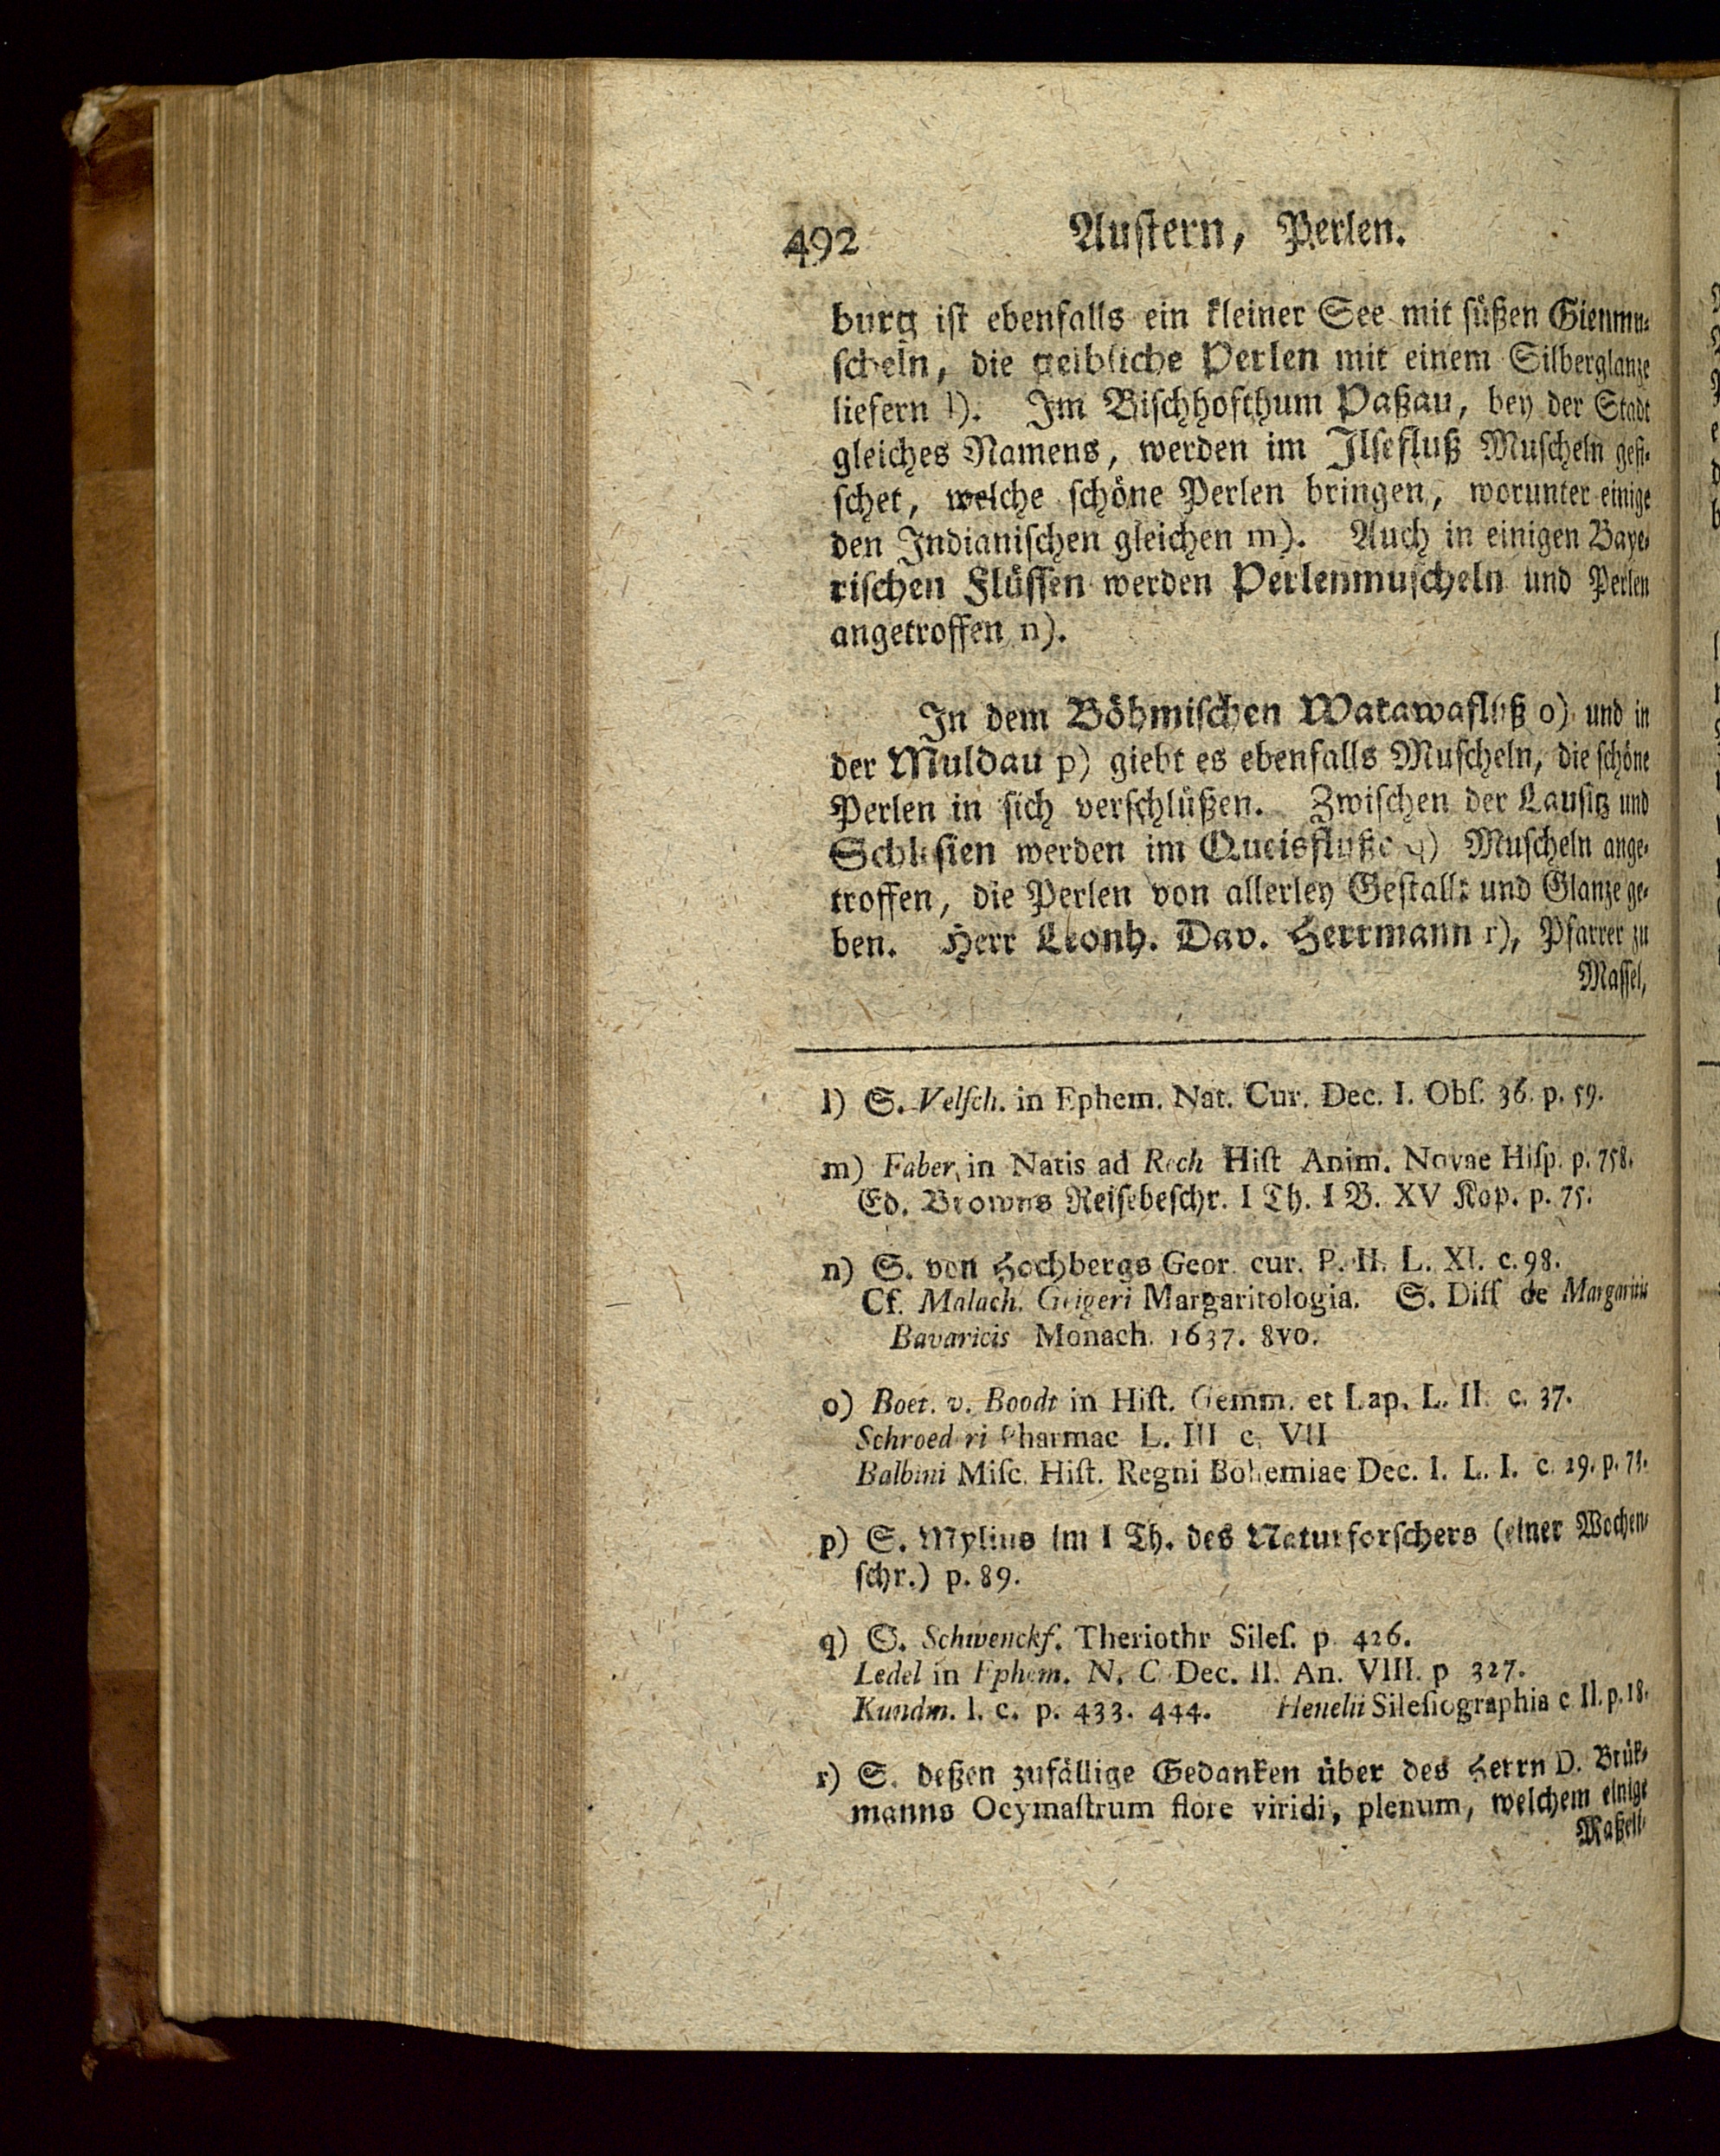 492 Austern, Perlen.
burg ist ebenfalls ein kleiner See mit süßen Gienmu-
scheln, die gelbliche Perlen mit einem Silberglanze
liefern l). Im Bischhofthum Paßau, bey der Stadt
gleiches Namens, werden im Ilsefluß Muscheln gefi-
schet, welche schöne Perlen bringen, worunter einige
den Indianischen gleichen m). Auch in einigen Baye-
rischen Flüssen werden Perlenmuscheln und Perlen
angetroffen n).
In dem Böhmischen Watawafluß o) und in
der Muldau p) giebt es ebenfalls Muscheln, die schöne
Perlen in sich verschlüßen. Zwischen der Lausitz und
Schlesien werden im Queisfluße q) Muscheln ange-
troffen, die Perlen von allerley Gestallt und Glanze ge-
ben. Herr Leonh. Dav. Herrmann r), Pfarrer zu
Massel,
l) S. Velſch. in Ephem. Nat. Cur. Dec. I. Obſ. 36. p. 59.
m) Faber, in Natis ad Rech Hiſt Anim. Novae Hiſp. p. 758.
Ed. Browns Reisebeschr. I Th. I B. XV Kap. p. 75.
n) S. von Hochbergs Geor. cur. P. II. L. XI. c. 98.
Cf. Malach. Geigeri Margaritologia. S. Diſſ de Margaritis
Bavaricis Monach. 1637. 8vo.
o) Boet. v. Boodt in Hiſt. Gemm. et Lap. L. II. c. 37.
Schroederi Pharmac L. III c. VII
Balbini Miſc. Hiſt. Regni Bohemiae Dec. I. L. I. c. 29. p. 73.
p) S. Mylius im I Th. des Naturforschers (einer Wochen-
schr.) p. 89.
q) S. Schwenckf. Theriothr Sileſ. p. 426.
Ledel in Ephem. N. C Dec. II. An. VIII. p 327.
Kundm. l. c. p. 433. 444. Henelii Sileſiographia c II. p. 18.
r) S. deßen zufällige Gedanken über des Herrn D. Brük-
manns Ocymaſtrum flore viridi, plenum, welchem einige
Maßell-